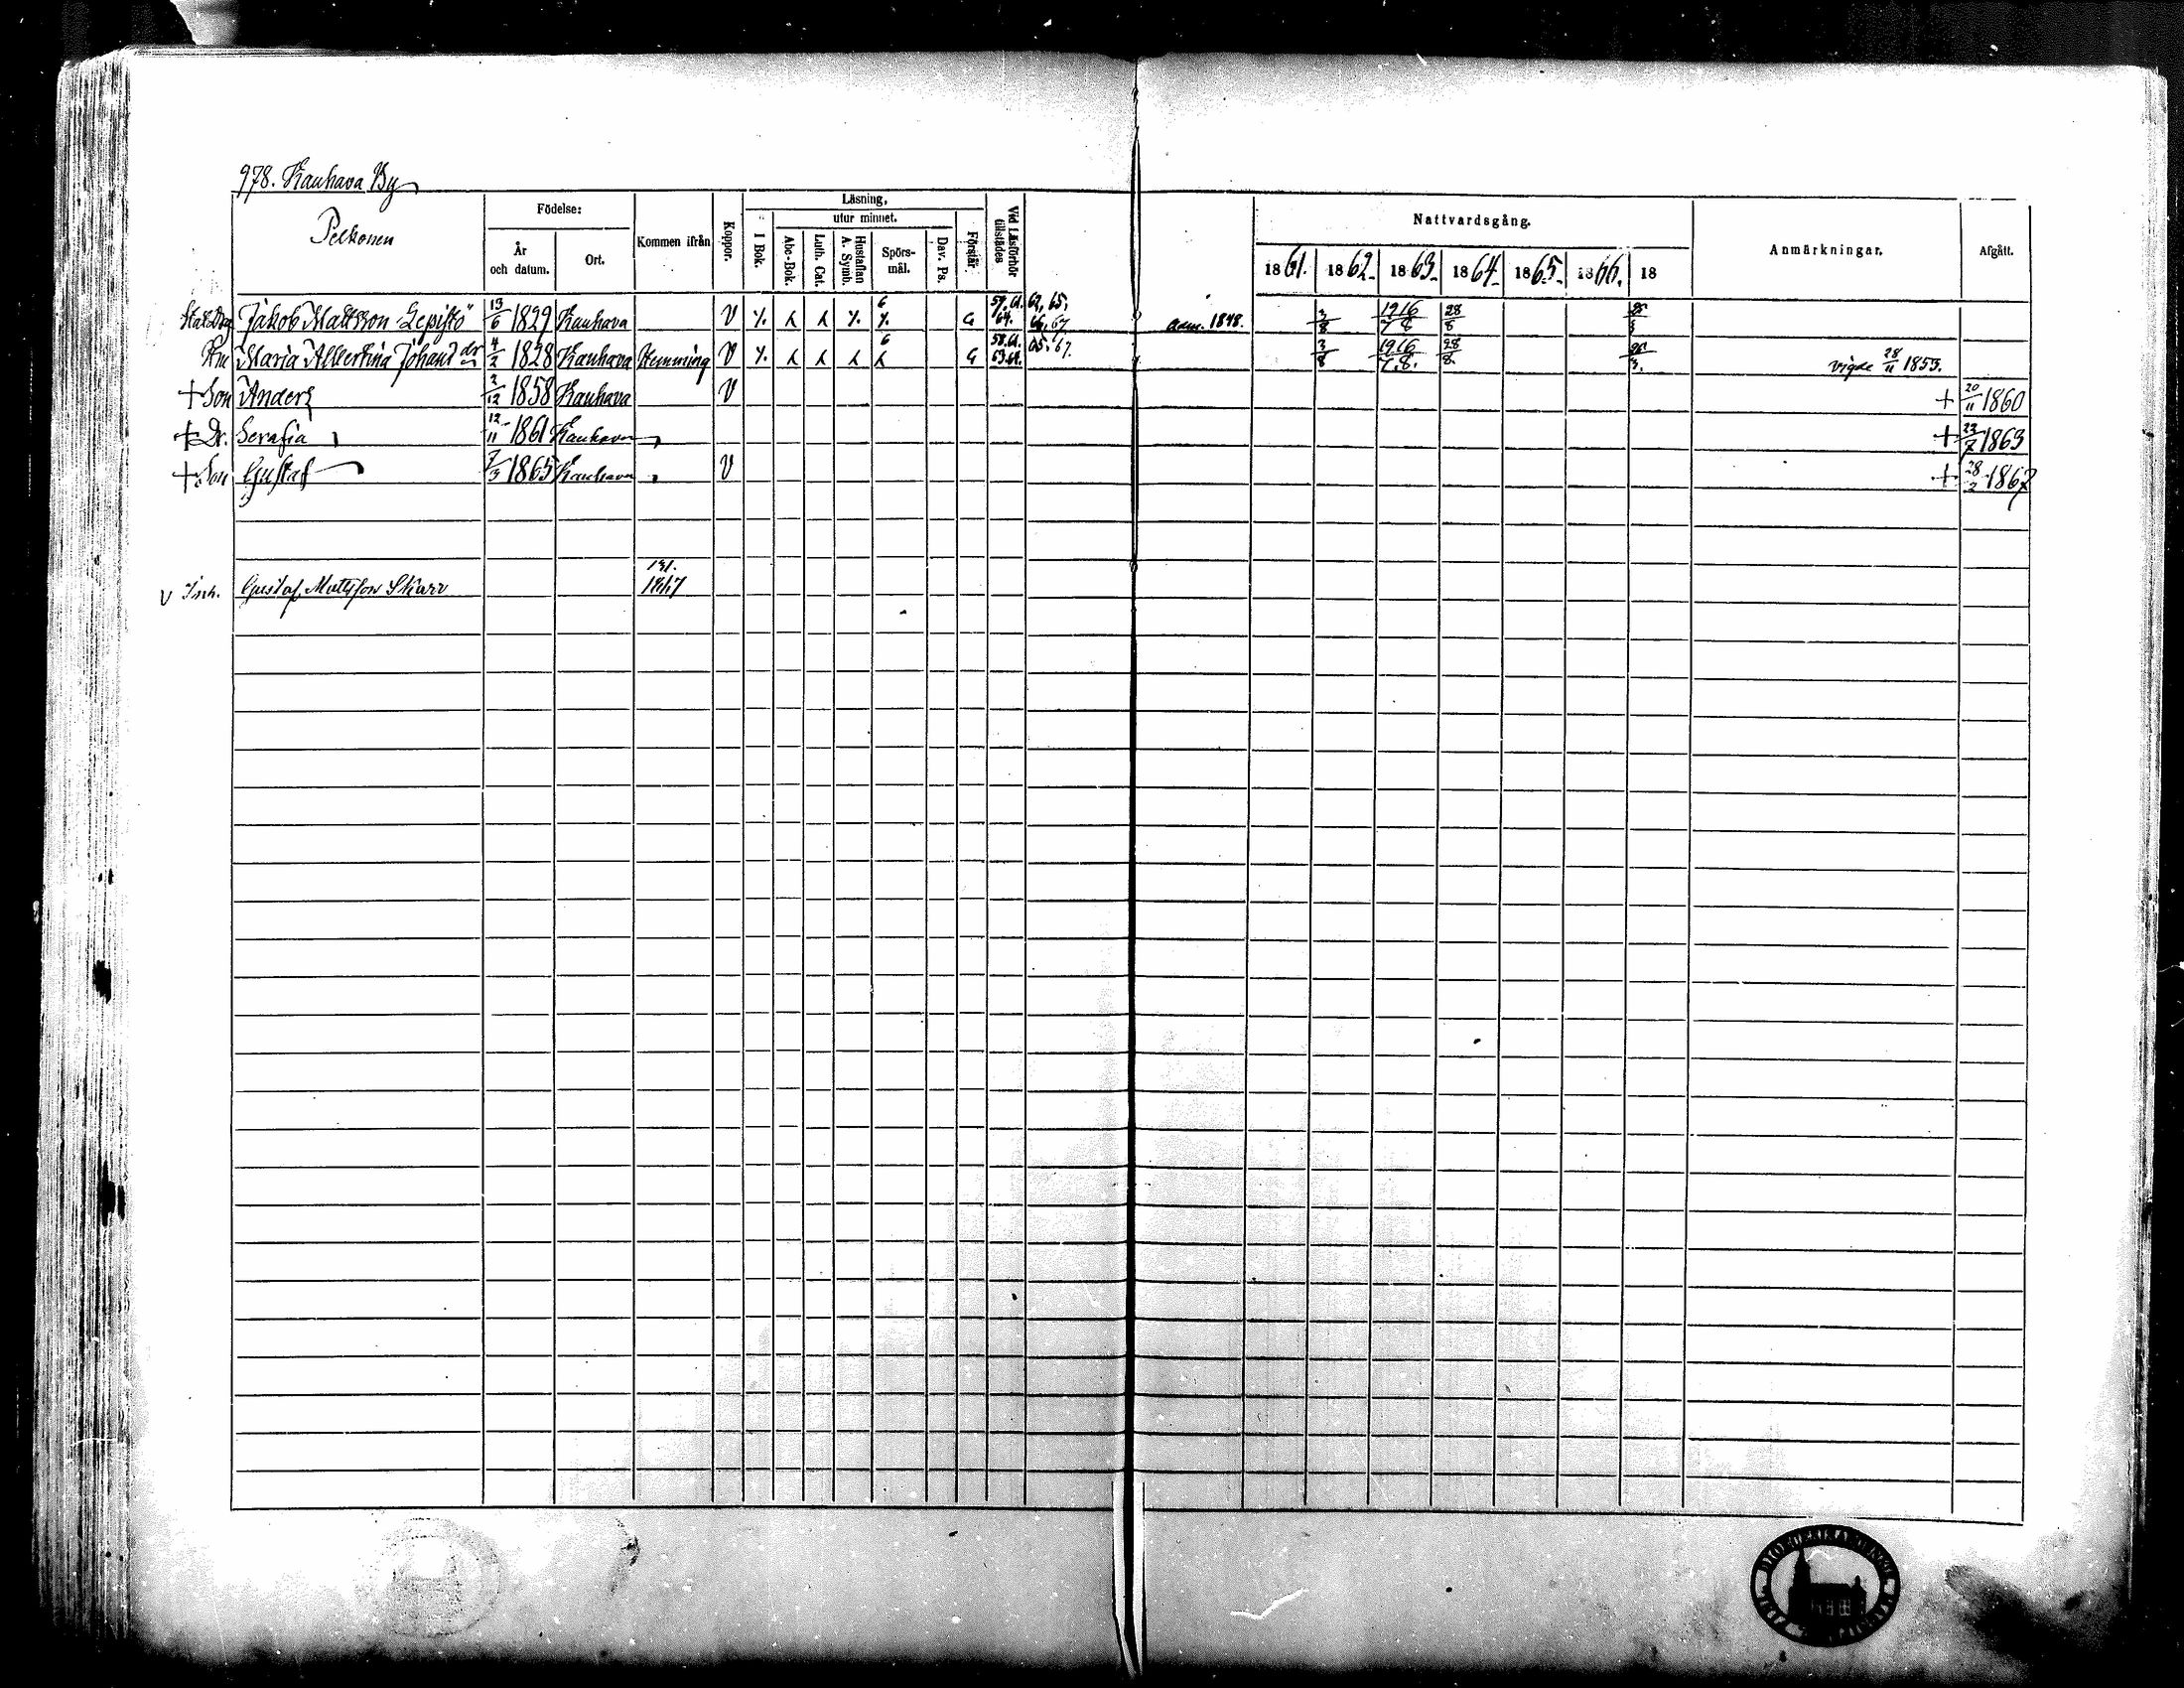 978. Kauhava By
Pelkonen
Födelse:
År och datum.
Ort.
Kommen ifrån
Koppor.
Läsning,
I Bok.
utur minnet.
Abc-Bok.
Luth. Cat.
Hustaflan A. Symb.
Spörs-mål.
Dav. Ps.
Förstår.
Vid Läsförhör tillstädes
Nattvardsgång.
1861. 1862. 1863. 1864. 1865. 1866. 18
Anmärkningar.
Afgått.
Jakob Mattsson Lepistö 13/6 1829 Kauhava V G 62, 65, 66, 67 adm. 1848. 3/8 19 16/7 8 28/8
Maria Albertina Johansdr 4/2 1828 Kauhava Hemming V G 65. 67. 3/8 19 16/7. 8. 28/8 vigde 28/11 1853.
+ Son Anders 2/12 1858 Kauhava V + 20/11 1860
+ Dr. Serafia 12/11 1861 Kauhava + 23/7 1863
+ Son Gustaf 7/3 1865 Kauhava V + 28/2 1867
131.
v Inh. Gustaf Mattsson 1867